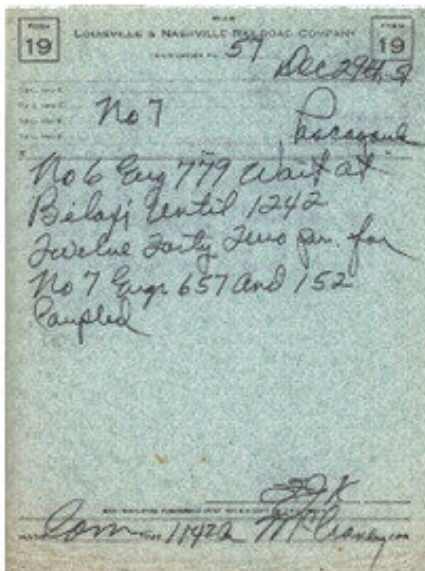 FORM 19
LOUISVILLE & NASHVILLE RAILROAD COMPANY
FORM 19
57
Dec 29th, 51
No 7
Pascagoula
No 6 Eng 779 wait at
Biloxi until 1242
Twelve Forty Two pm. for
No 7 Engs 657 and 152
Coupled
Com 1142a